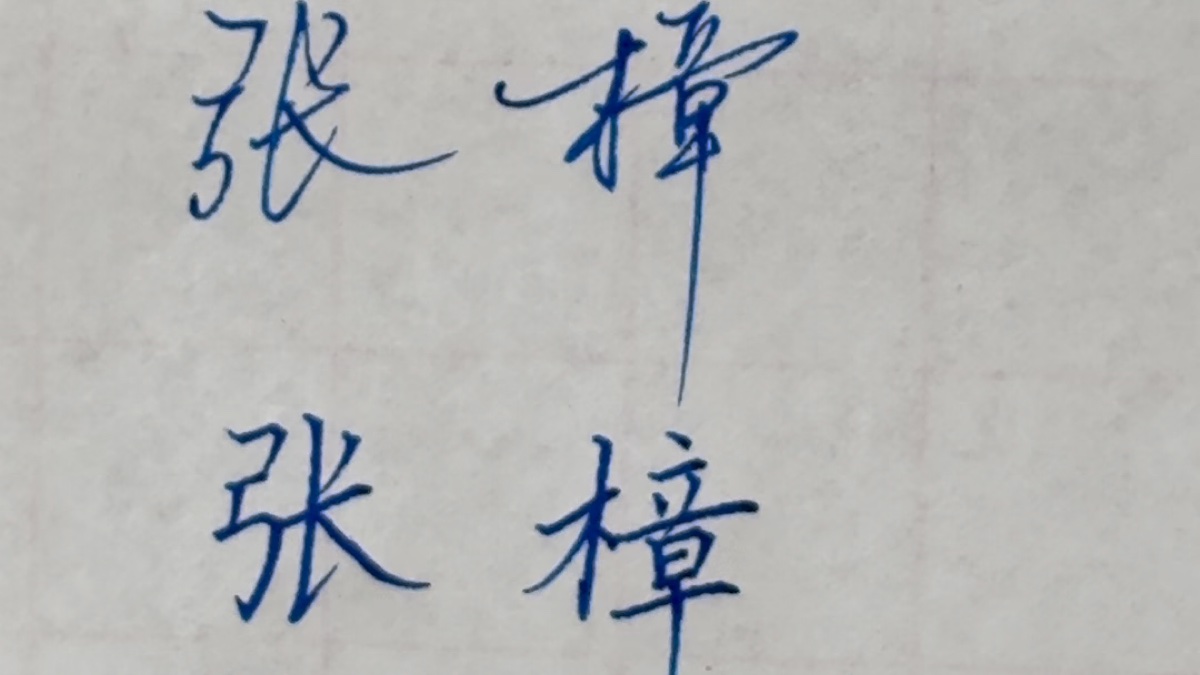 张樟
张樟